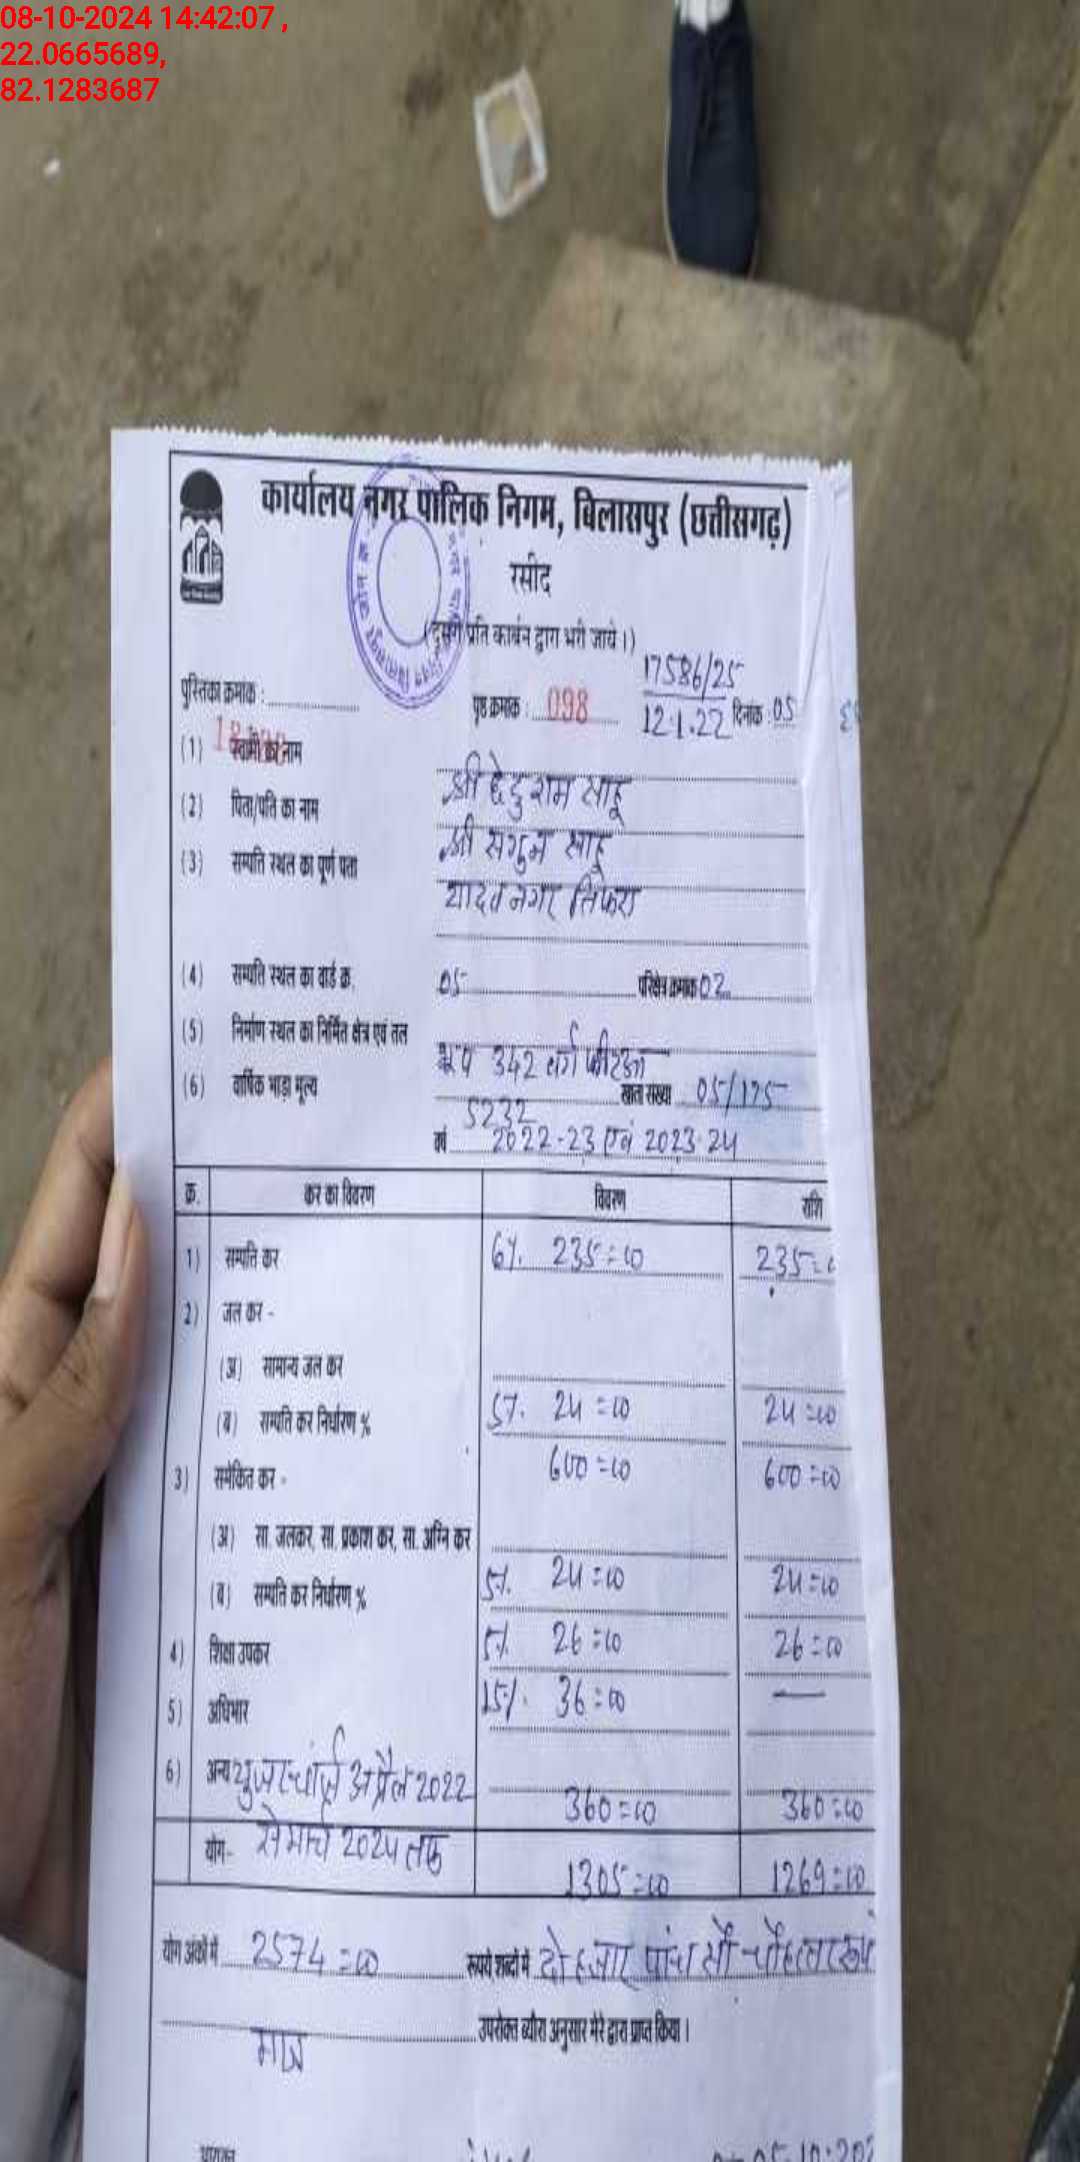 08-10-2024 14:42:07 ,
22.0665689,
82.1283687
कार्यालय नगर पालिक निगम, बिलासपुर (छत्तीसगढ़)
रसीद
(दूसरी प्रति कार्बन द्वारा भरी जाये।)
17586/25
पुस्तिका क्रमांक : पृष्ठ क्रमांक : 098 12.1.22 दिनांक : 05
(1) स्वामी का नाम श्री छेदुराम साहू
(2) पिता/पति का नाम श्री सगुन साहू
(3) सम्पति स्थल का पूर्ण पता यादव नगर तिफरा
(4) सम्पति स्थल का वार्ड क्र. 05 परिक्षेत्र क्रमांक 02
(5) निर्माण स्थल का निर्मित क्षेत्र एवं तल 342 वर्ग फीट
(6) वार्षिक भाड़ा मूल्य 5232 खाता संख्या 05/175
वर्ष 2022-23 एवं 2023-24
क्र. कर का विवरण विवरण राशि
1) सम्पति कर 6%. 235=00 235=
2) जल कर -
(अ) सामान्य जल कर
(ब) सम्पति कर निर्धारण % 5%. 24=00 24=00
3) समेकित कर - 600=00 600=00
(अ) सा. जलकर, सा. प्रकाश कर, सा. अग्नि कर
(ब) सम्पति कर निर्धारण % 5%. 24=00 24=00
4) शिक्षा उपकर 5% 26=00 26=00
5) अधिभार 15%. 36=00 —
6) अन्य युजर चार्ज अप्रैल 2022 360=00 360=00
योग- से मार्च 2024 तक 1305=00 1269=00
योग अंकों में 2574=00 रूपये शब्दों में दो हजार पांच सौ चौहत्तर रूपये
मात्र उपरोक्त ब्यौरा अनुसार मेरे द्वारा प्राप्त किया।